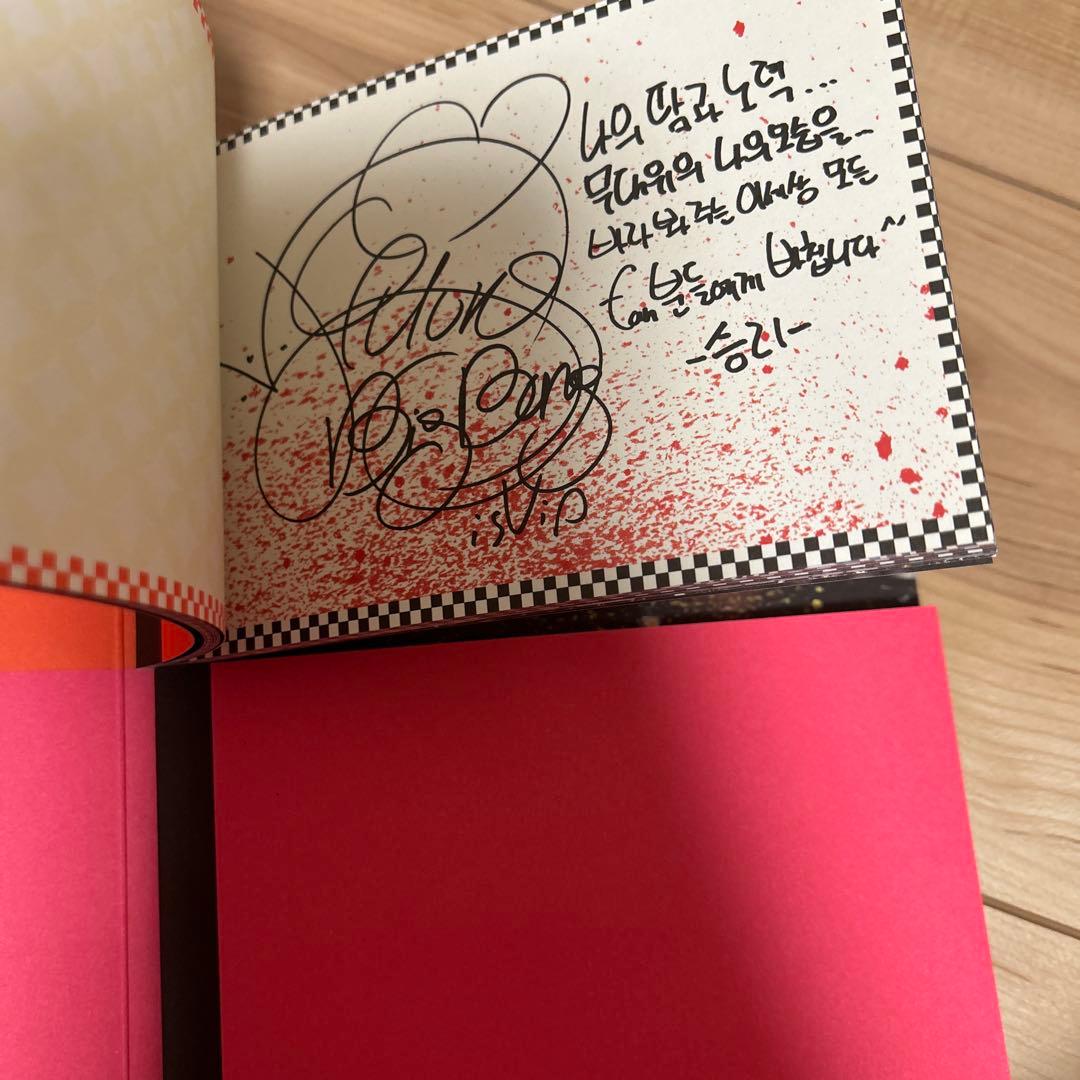 나의 땀과 노력...
무대위의 나의모습을~
바라봐 주는 이세상 모든
fan분들에게 바칩니다~
-승리-
BigBang
is V.i.P